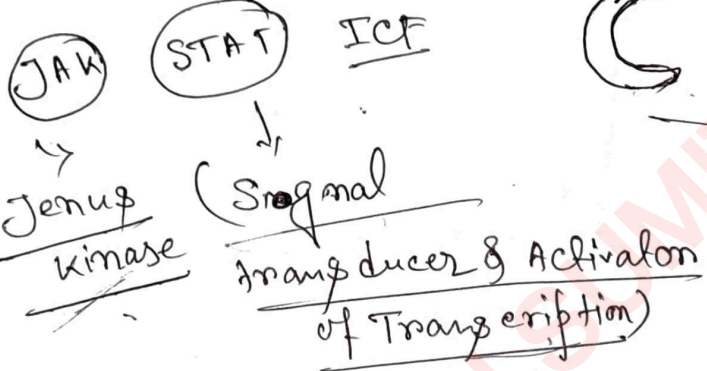 JAK STAT ICF
Jenus (Signal
Kinase transducer & Activator
of Transcription)
SUMI